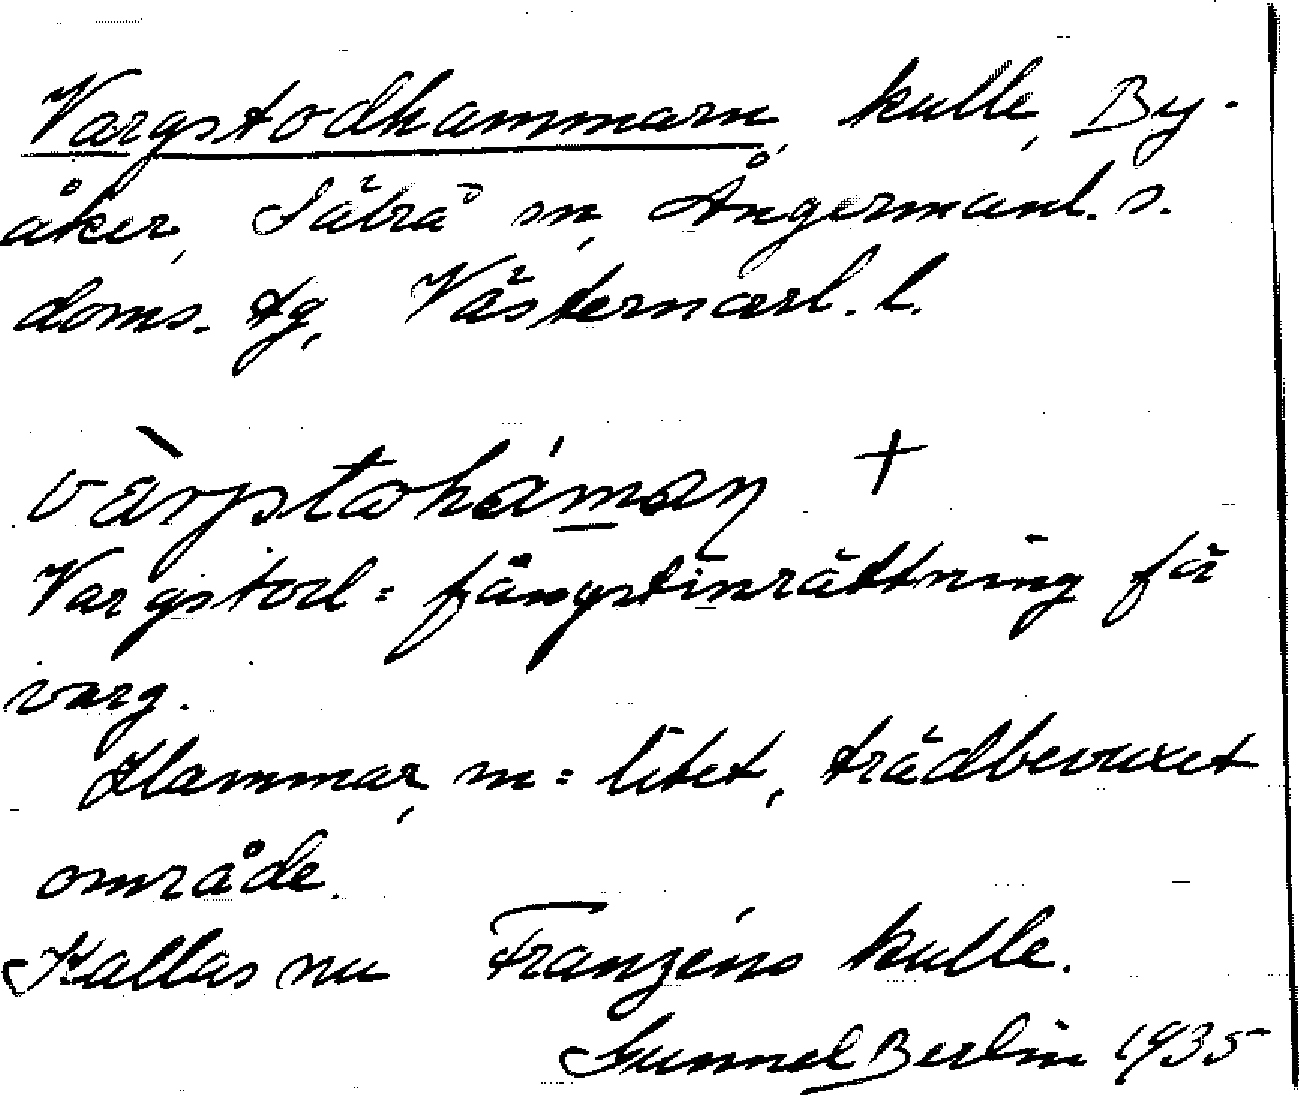 Vargstodhammarn, kulle, By-
åker, Sätrå sn, Ångermanl. s.
doms. tg, Västernorrl. l.
Vargstod = fångstinrättning för
varg.
Hammar, m = litet, trädbevuxet
område.
Kallas nu Franzéns kulle.
Gunnel Berlin 1935